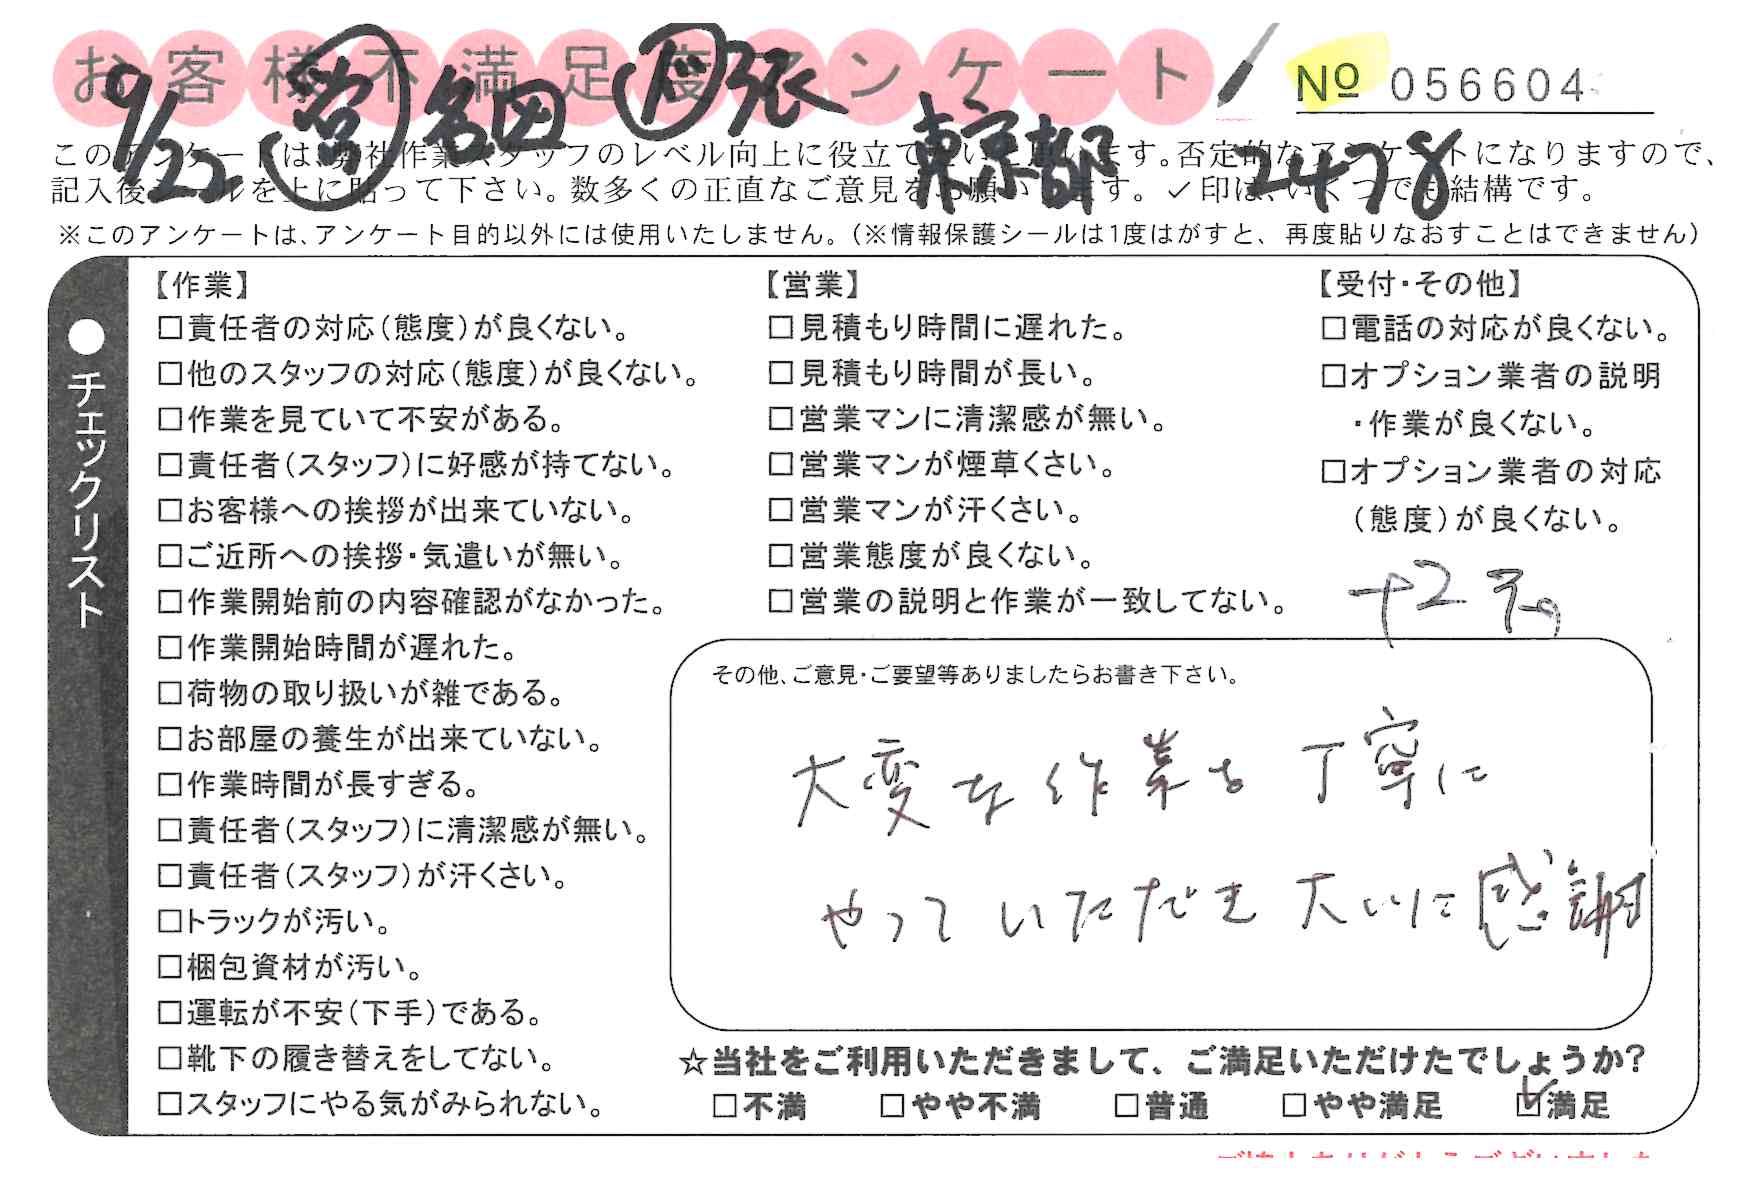 お客様不満足度アンケート
№ 056604
9/22 営 多田 ド張
東京都 2478
このアンケートは、弊社作業スタッフのレベル向上に役立てたいと思います。否定的なアンケートになりますので、
記入後シールを上に貼って下さい。数多くの正直なご意見をお願いします。✓印は、いくつでも結構です。
※このアンケートは、アンケート目的以外には使用いたしません。(※情報保護シールは1度はがすと、再度貼りなおすことはできません)
●チェックリスト
【作業】
□責任者の対応(態度)が良くない。
□他のスタッフの対応(態度)が良くない。
□作業を見ていて不安がある。
□責任者(スタッフ)に好感が持てない。
□お客様への挨拶が出来ていない。
□ご近所への挨拶・気遣いが無い。
□作業開始前の内容確認がなかった。
□作業開始時間が遅れた。
□荷物の取り扱いが雑である。
□お部屋の養生が出来ていない。
□作業時間が長すぎる。
□責任者(スタッフ)に清潔感が無い。
□責任者(スタッフ)が汗くさい。
□トラックが汚い。
□梱包資材が汚い。
□運転が不安(下手)である。
□靴下の履き替えをしてない。
□スタッフにやる気がみられない。
【営業】
□見積もり時間に遅れた。
□見積もり時間が長い。
□営業マンに清潔感が無い。
□営業マンが煙草くさい。
□営業マンが汗くさい。
□営業態度が良くない。
□営業の説明と作業が一致してない。
【受付・その他】
□電話の対応が良くない。
□オプション業者の説明
・作業が良くない。
□オプション業者の対応
(態度)が良くない。
その他、ご意見・ご要望等ありましたらお書き下さい。
大変な作業を丁寧に
やっていただき大いに感謝
☆当社をご利用いただきまして、ご満足いただけたでしょうか?
□不満 □やや不満 □普通 □やや満足 ☑満足